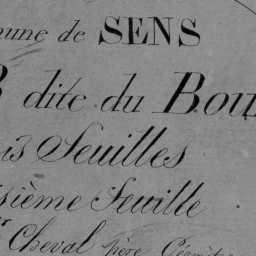 mune de SENS
B dite du Bou
13 Feuilles
sième Feuille
Cheval père Géomètre